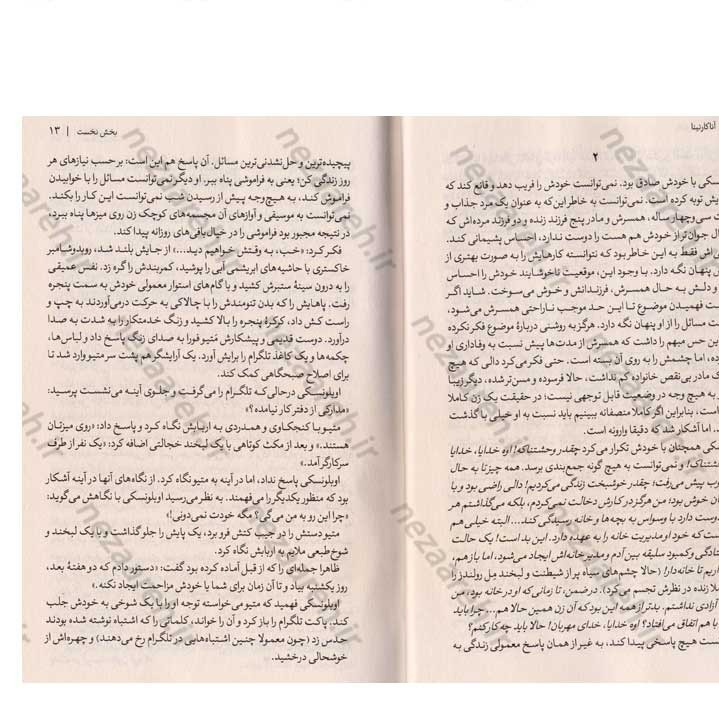 آناکارنینا
۲
سکی با خودش صادق بود. نمی‌توانست خودش را فریب دهد و قانع کند که
یش توبه کرده است. نمی‌توانست به خاطر این‌که به عنوان یک مرد جذاب و
ت سی‌وچهار ساله، همسرش و مادر پنج فرزند زنده و دو فرزند مرده‌اش که
ال جوان‌تر از خودش هم هست را دوست ندارد، احساس پشیمانی کند.
ی‌اش فقط به این خاطر بود که نتوانسته کارهایش را به صورت بهتری از
ش پنهان نگه دارد. با وجود این، موقعیت ناخوشایند خودش را احساس
و دلش به حال همسرش، فرزندانش و خودش می‌سوخت. شاید اگر
ت فهمیدن موضوع تا این حد موجب ناراحتی همسرش می‌شود،
ت مسائل را از او پنهان نگه دارد. هرگز به روشنی دربارهٔ موضوع فکر نکرده
ین حس مبهم را داشت که همسرش از مدت‌ها پیش نسبت به وفاداری او
ده، اما چشمش را به روی آن بسته است. حتی فکر می‌کرد دالی که هیچ
ک مادر بی‌نقص خانواده کم نداشت، حالا فرسوده و مسن‌تر شده، دیگر زیبا
ر به هیچ وجه در وضعیت قابل توجهی نیست؛ در حقیقت یک زن کاملا
است، بنابراین اگر کاملا منصفانه ببینیم باید نسبت به او خیلی با گذشت
. اما آشکار شد که دقیقا وارونه است.
سکی همچنان با خودش تکرار می‌کرد چقدر وحشتناکه! اوه خدایا، خدایا
شتناک! و نمی‌توانست به هیچ گونه جمع‌بندی برسد. همه چیز تا به حال
وب پیش می‌رفت؛ چقدر خوشبخت زندگی می‌کردیم! دالی راضی بود و با
ان خوش بود؛ من هرگز در کارش دخالت نمی‌کردم، بلکه می‌گذاشتم هر
وست دارد با وسواس به بچه‌ها و خانه رسیدگی کند... البته خیلی هم
ست که خود او مدیریت خانه را به عهده دارد. این بد است! یک حالت
تادگی و کمبود سلیقه بین آدم و مدیر خانه‌اش ایجاد می‌شود، اما باز هم،
اریم تا خانه‌دار! (حالا چشم‌های سیاه پر از شیطنت و لبخند مل رولند را
ملا زنده در نظرش تجسم می‌کرد). درضمن، تا زمانی‌که او در خانه بود، من
آزادی نداشتم. بدتر از همه این بود که آن زن همین حالا هم... چرا باید
با هم اتفاق می‌افتاد؟ اوه خدایا، خدای مهربان! حالا باید چه‌کار کنم؟
ست هیچ پاسخی پیدا کند، به غیر از همان پاسخ معمولی زندگی به
بخش نخست | ۱۳
پیچیده‌ترین و حل‌نشدنی‌ترین مسائل. آن پاسخ هم این است: بر حسب نیازهای هر
روز زندگی کن؛ یعنی به فراموشی پناه ببر. او دیگر نمی‌توانست مسائل را با خوابیدن
فراموش کند، به هیچ‌وجه پیش از رسیدن شب نمی‌توانست این کار را بکند.
نمی‌توانست به موسیقی و آوازهای آن مجسمه‌های کوچک زن روی میزها پناه ببرد،
در نتیجه مجبور بود فراموشی را در خیال‌بافی‌های روزانه پیدا کند.
فکر کرد: «خب، به وقتش خواهیم دید...» از جایش بلند شد، روبدوشامبر
خاکستری با حاشیه‌های ابریشمی آبی را پوشید، کمربندش را گره زد. نفس عمیقی
را به درون سینهٔ ستبرش کشید و با گام‌های استوار معمولی خودش به سمت پنجره
رفت. پاهایش را که بدن تنومندش را با چالاکی به حرکت درمی‌آوردند به چپ و
راست کش داد، کرکرهٔ پنجره را بالا کشید و زنگ خدمتکار را به شدت به صدا
درآورد. دوست قدیمی و پیشکارش متیو فورا به صدای زنگ پاسخ داد و لباس‌ها،
چکمه‌ها و یک کاغذ تلگرام را برایش آورد. یک آرایشگر هم پشت سر متیو وارد شد تا
برای اصلاح صبحگاهی کمک کند.
اوبلونسکی درحالی‌که تلگرام را می‌گرفت و جلوی آینه می‌نشست پرسید:
«مدارکی از دفتر کار نیامده؟»
متیو با کنجکاوی و همدردی به اربابش نگاه کرد و پاسخ داد: «روی میزتان
هستند.» و بعد از مکث کوتاهی با یک لبخند خجالتی اضافه کرد: «یک نفر از طرف
سرکارگر آمد.»
اوبلونسکی پاسخ نداد، اما در آینه به متیو نگاه کرد. از نگاه‌های آنها در آینه آشکار
بود که منظور یکدیگر را می‌فهمند. به نظر می‌رسید اوبلونسکی با نگاهش می‌گوید:
«چرا این رو به من می‌گی؟ مگه خودت نمی‌دونی!»
متیو دستش را در جیب کتش فرو برد، یک پایش را جلو گذاشت و با یک لبخند و
شوخ‌طبعی ملایم به اربابش نگاه کرد.
ظاهرا جمله‌ای را که از قبل آماده کرده بود گفت: «دستور دادم که دو هفتهٔ بعد،
روز یکشنبه بیاد و تا آن زمان برای شما یا خودش مزاحمت ایجاد نکنه.»
اوبلونسکی فهمید که متیو می‌خواسته توجه او را با یک شوخی به خودش جلب
کند. پاکت تلگرام را باز کرد و آن را خواند، کلماتی را که اشتباه نوشته شده بودند
حدس زد (چون معمولا چنین اشتباه‌هایی در تلگرام رخ می‌دهند) و چهره‌اش از
خوشحالی درخشید.
nezaareh.ir